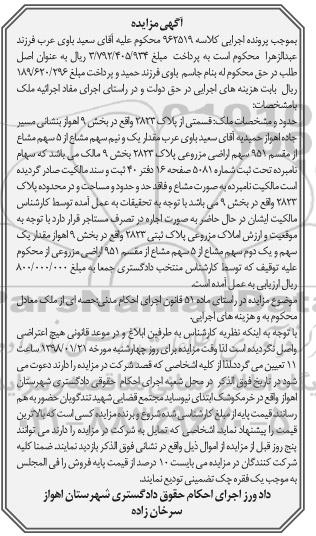 آگهی مزایده
بموجب پرونده اجرایی کلاسه ۹۶۲۵۱۹ محکوم علیه آقای سعید باوی عرب فرزند
عبدالزهرا محکوم است به پرداخت مبلغ ۳/۷۹۲/۴۰۵/۹۳۴ ریال به عنوان اصل
طلب در حق محکوم له بنام جاسم باوی فرزند حمید و پرداخت مبلغ ۱۸۹/۶۲۰/۲۹۶
ریال بابت هزینه های اجرایی در حق دولت و در راستای اجرای مفاد اجرائیه ملک
بامشخصات:
حدود و مشخصات ملک: قسمتی از پلاک ۲۸۲۳ واقع در بخش ۹ اهواز بنشانی مسیر
جاده اهواز حمیدیه آقای سعید باوی عرب مقدار یک و نیم سهم مشاع از ۵ سهم مشاع
از مقسم ۹۵۱ سهم اراضی مزروعی پلاک ۲۸۲۳ بخش ۹ مالک می باشد که سهام
نامبرده تحت ثبت شماره ۵۰۸۱ صفحه ۱۶ دفتر ۴۰ ثبت و سند مالکیت صادر گردیده
است مالکیت نامبرده به صورت مشاع و فاقد حد و حدود و مساحت و در محدوده پلاک
۲۸۲۳ واقع در بخش ۹ می باشد با توجه به تحقیقات به عمل آمده توسط کارشناس
مالکیت ایشان در حال حاضر به صورت اجاره در تصرف مستاجر قرار دارد با توجه به
موقعیت و ارزش املاک مزروعی پلاک ثبتی ۲۸۲۳ واقع در بخش ۹ اهواز مقدار یک
سهم و یک دوم سهم مشاع از ۵ سهم مشاع از مقسم ۹۵۱ اراضی مزروعی از محکوم
علیه توقیف که توسط کارشناس منتخب دادگستری جمعا به مبلغ ۸۰۰/۰۰۰/۰۰۰
ریال ارزیابی به عمل آمده است.
موضوع مزایده در راستای ماده ۵۱ قانون اجرای احکام مدنی:حصه ای از ملک معادل
محکوم به و هزینه های اجرایی.
با توجه به اینکه نظریه کارشناس به طرفین ابلاغ و در موعد قانونی هیچ اعتراضی
واصل نگردیده است لذا وقت مزایده برای روز چهارشنبه مورخه ۱۳۹۸/۰۱/۲۱ ساعت
۱۱ تعیین می گرددلذا از کلیه اشخاصی که قصد شرکت در مزایده را دارند دعوت می
شود در تاریخ فوق الذکر در محل شعبه اجرای احکام حقوقی دادگستری شهرستان
اهواز واقع در خرمکوشک ابتدای نیوساید مجتمع قضایی شهید تندگویان حضور به هم
رسانند قیمت پایه از مبلغ کارشناسی شده شروع و برنده مزایده کسی است که بالاترین
قیمت را پیشنهاد نماید اشخاصی که تمایل به شرکت در مزایده را دارند می توانند
پنج روز قبل از مزایده از اموال ذیل واقع در نشانی فوق الذکر بازدید نمایند. ضمنا کلیه
شرکت کنندگان در مزایده می بایست ۱۰ درصد از قیمت پایه فروش را فی المجلس
به موجب یک فقره چک تضمینی تودیع نمایند.
دادورز اجرای احکام حقوق دادگستری شهرستان اهواز
سرخان زاده